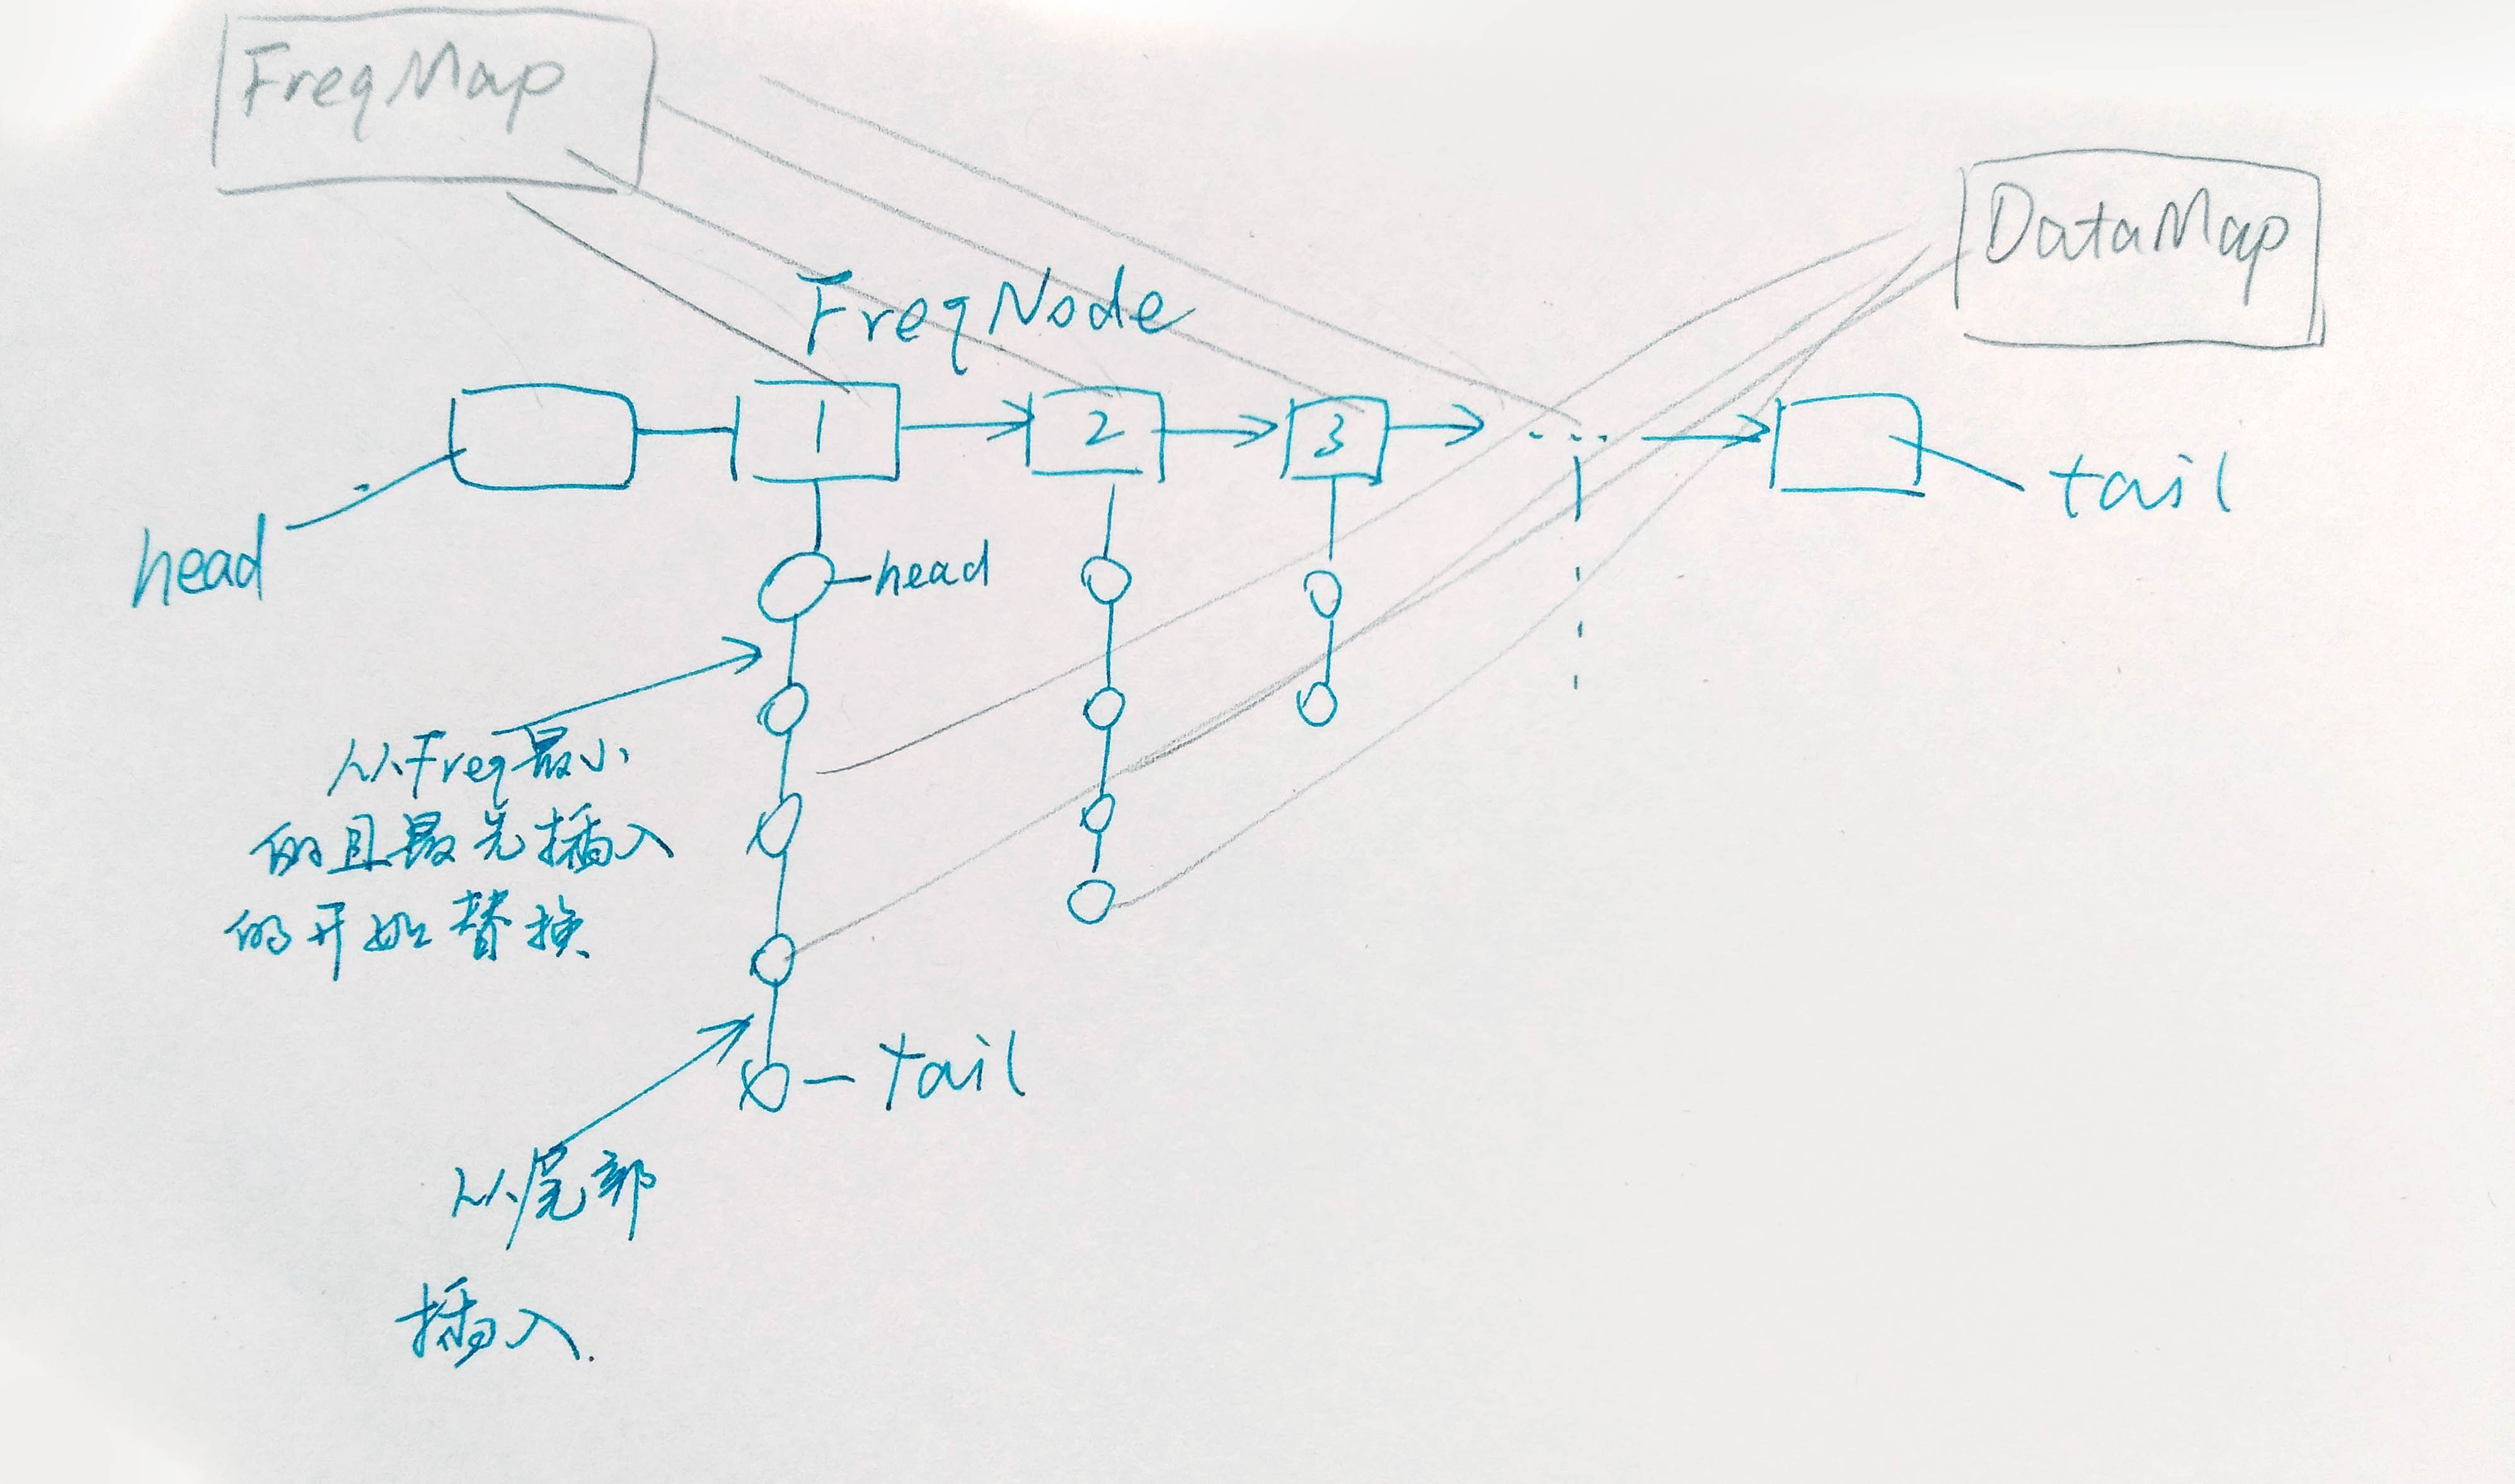 FreqMap
DataMap
FreqNode
1
2
3
...
tail
head
head
从Freq最小
的且最先插入
的开始替换
tail
从尾部
插入.